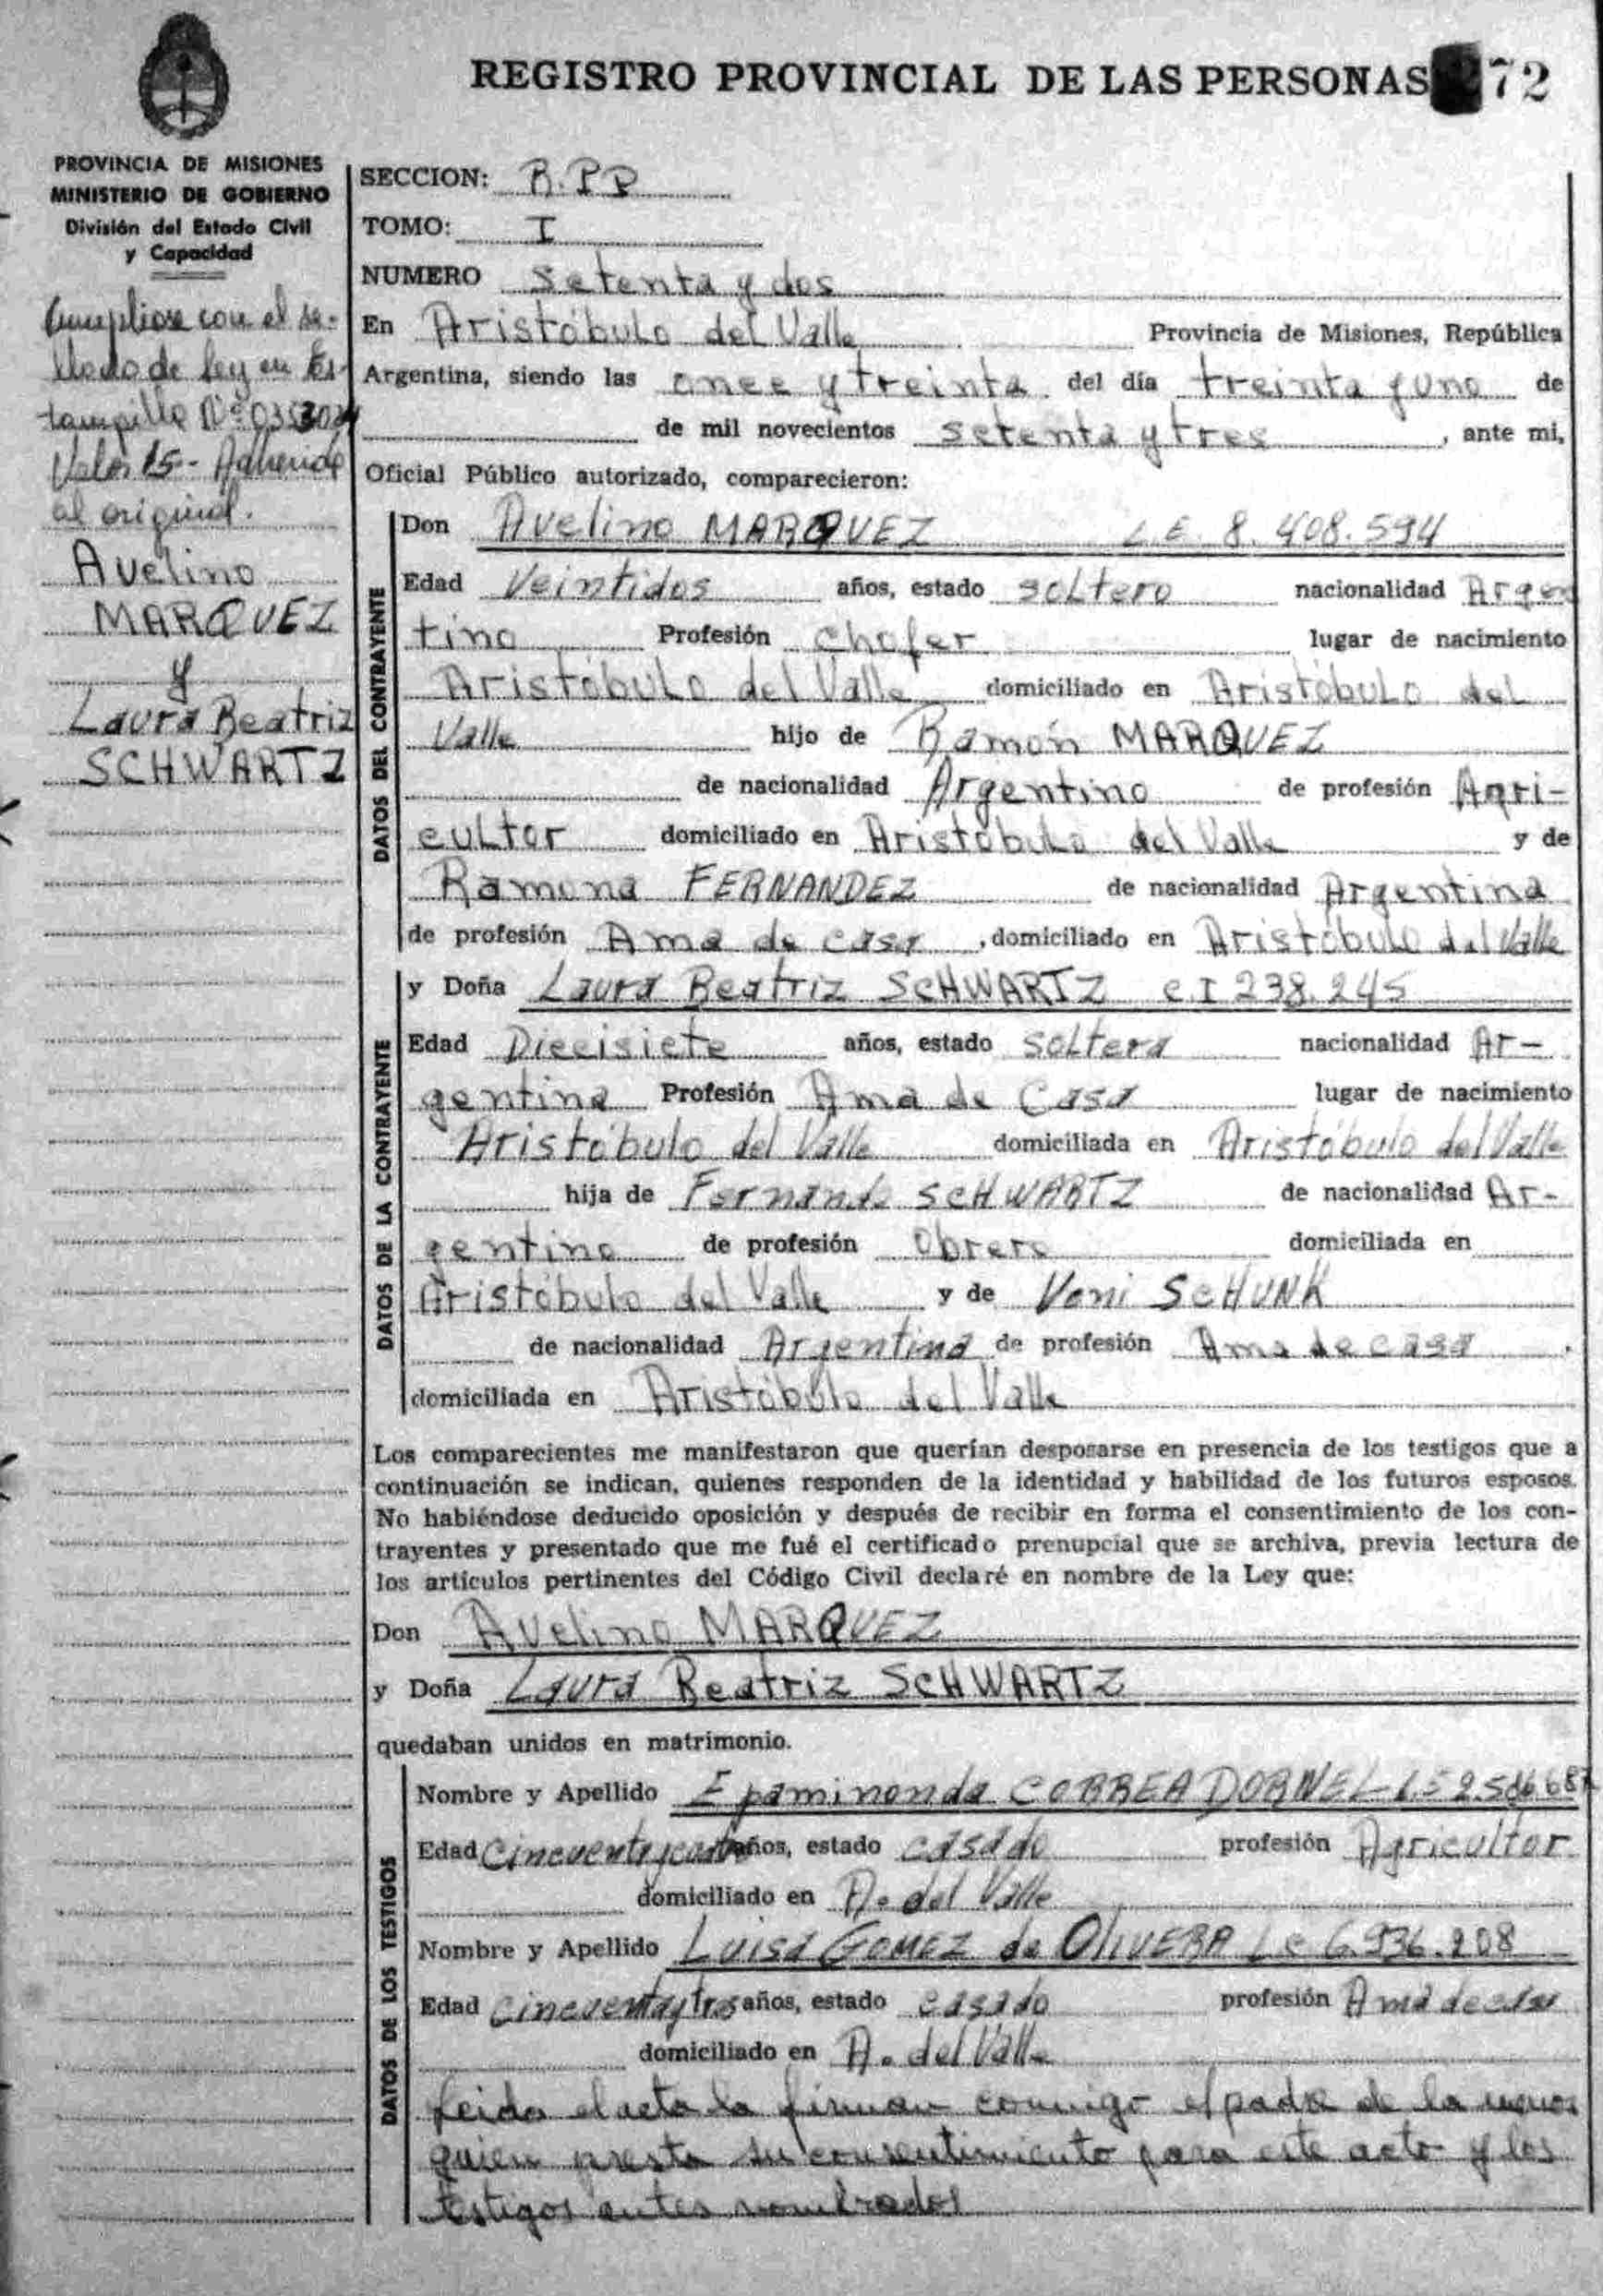 REGISTRO PROVINCIAL DE LAS PERSONAS 72
PROVINCIA DE MISIONES
MINISTERIO DE GOBIERNO
División del Estado Civil
y Capacidad
Cumpliose con el se-
llado de ley en Es-
tampilla Nº
Valor 15.- Adherido
al original.
Avelino
MARQUEZ
y
Laura Beatriz
SCHWARTZ
SECCION: R.P.P
TOMO: I
NUMERO setenta y dos
En Aristóbulo del Valle Provincia de Misiones, República
Argentina, siendo las once y treinta del día treinta y uno de
de mil novecientos setenta y tres, ante mi,
Oficial Público autorizado, comparecieron:
DATOS DEL CONTRAYENTE
Don Avelino MARQUEZ L.E. 8.408.594
Edad Veintidos años, estado soltero nacionalidad Argen
tino Profesión chofer lugar de nacimiento
Aristóbulo del Valle domiciliado en Aristóbulo del
Valle hijo de Ramón MARQUEZ
de nacionalidad Argentino de profesión Agri-
cultor domiciliado en Aristóbulo del Valle y de
Ramona FERNANDEZ de nacionalidad Argentina
de profesión Ama de casa, domiciliado en Aristóbulo del Valle
DATOS DE LA CONTRAYENTE
y Doña Laura Beatriz SCHWARTZ C.I 238.245
Edad Diecisiete años, estado soltera nacionalidad Ar-
gentina Profesión Ama de Casa lugar de nacimiento
Aristóbulo del Valle domiciliada en Aristóbulo del Valle
hija de Fernando SCHWARTZ de nacionalidad Ar-
gentino de profesión Obrero domiciliada en
Aristóbulo del Valle y de Voni SCHUNK
de nacionalidad Argentina de profesión Ama de casa.
domiciliada en Aristóbulo del Valle
Los comparecientes me manifestaron que querían desposarse en presencia de los testigos que a
continuación se indican, quienes responden de la identidad y habilidad de los futuros esposos.
No habiéndose deducido oposición y después de recibir en forma el consentimiento de los con-
trayentes y presentado que me fué el certificado prenupcial que se archiva, previa lectura de
los artículos pertinentes del Código Civil declaré en nombre de la Ley que:
Don Avelino MARQUEZ
y Doña Laura Beatriz SCHWARTZ
quedaban unidos en matrimonio.
DATOS DE LOS TESTIGOS
Nombre y Apellido Epaminonda CORREA DORNEL L.E
Edad Cincuenta y años, estado casado profesión Agricultor
domiciliado en A. del Valle
Nombre y Apellido Luisa GOMEZ de OLIVERA Lc 6.936.208
Edad cincuenta y tres años, estado casado profesión Ama de casa
domiciliado en A. del Valle
Leida el acta la firman conmigo el padre de la menor
quien presta su consentimiento para este acto y los
testigos antes nombrados